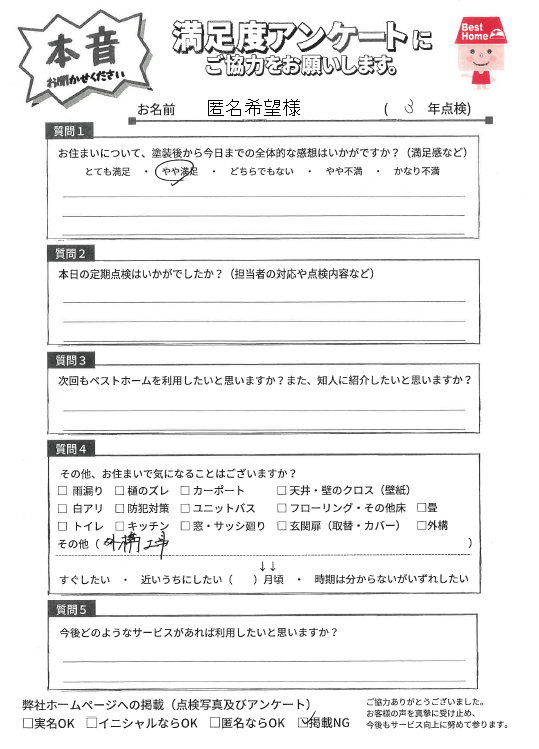 本音
お聞かせください
満足度アンケートに
ご協力をお願いします。
Best
Home
お名前 匿名希望様 ( 3 年点検)
質問1
お住まいについて、塗装後から今日までの全体的な感想はいかがですか？（満足感など）
とても満足 ・ やや満足 ・ どちらでもない ・ やや不満 ・ かなり不満
質問2
本日の定期点検はいかがでしたか？（担当者の対応や点検内容など）
質問3
次回もベストホームを利用したいと思いますか？また、知人に紹介したいと思いますか？
質問4
その他、お住まいで気になることはございますか？
□ 雨漏り □ 樋のズレ □ カーポート □ 天井・壁のクロス（壁紙）
□ 白アリ □ 防犯対策 □ ユニットバス □ フローリング・その他床 □畳
□ トイレ □ キッチン □ 窓・サッシ廻り □ 玄関扉（取替・カバー） □外構
その他（ 外構工事 ）
↓↓
すぐしたい ・ 近いうちにしたい（ ）月頃 ・ 時期は分からないがいずれしたい
質問5
今後どのようなサービスがあれば利用したいと思いますか？
弊社ホームページへの掲載（点検写真及びアンケート）
□実名OK □イニシャルならOK □匿名ならOK ☑掲載NG
ご協力ありがとうございました。
お客様の声を真摯に受け止め、
今後もサービス向上に努めて参ります。